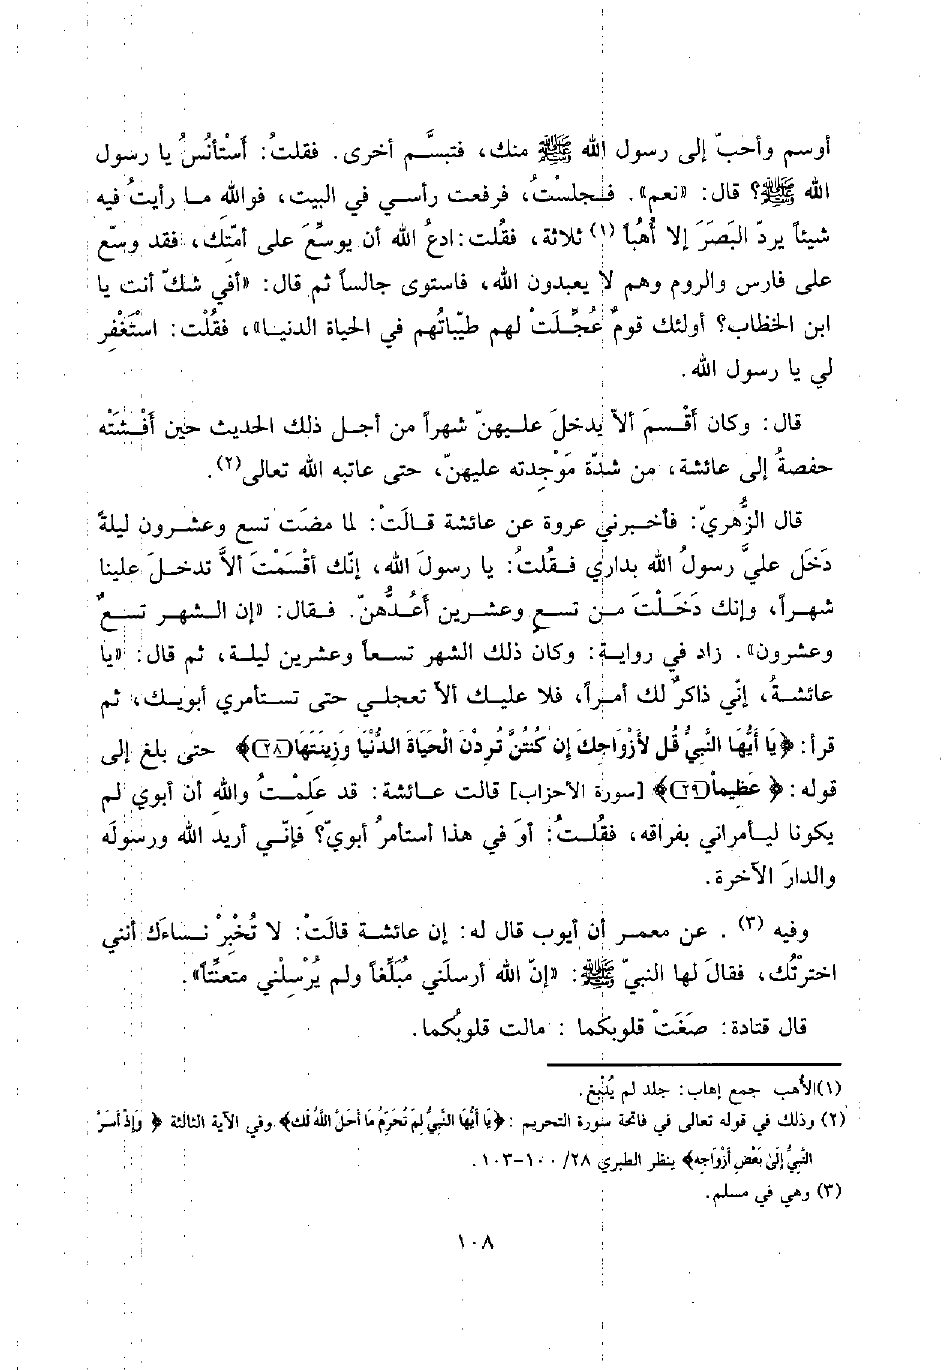 أوسم وأحبّ إلى رسول الله ﷺ منك، فتبسَّم أخرى. فقلتُ: أَسْتأنُسُ يا رسول
الله ﷺ؟ قال: «نعم». فجلستُ، فرفعت رأسي في البيت، فوالله ما رأيتُ فيه
شيئاً يردّ البَصَرَ إلا أُهُباً (١) ثلاثة، فقُلت: ادعُ الله أن يوسِّعَ على أمّتك، فقد وسّع
على فارس والروم وهم لا يعبدون الله، فاستوى جالساً ثم قال: «أفي شكّ أنت يا
ابن الخطاب؟ أولئك قومٌ عُجِّلَتْ لهم طيّباتُهم في الحياة الدنيا»، فقُلْت: اسْتَغْفِر
لي يا رسول الله.
قال: وكان أَقْسمَ ألاّ يدخلَ عليهنّ شهراً من أجل ذلك الحديث حين أَفْشَتْه
حفصةُ إلى عائشة، من شدّة مَوْجدته عليهنّ، حتى عاتبه الله تعالى (٢).
قال الزُّهريّ: فأخبرني عروة عن عائشة قالَتْ: لما مضَت تسع وعشرون ليلةً
دَخَل عليَّ رسولُ الله بداري فقُلتُ: يا رسولَ الله، إنّك أقْسَمْتَ ألاَّ تدخلَ علينا
شهراً، وإنك دَخَلْتَ من تسعٍ وعشرين أَعُدُّهنّ. فقال: «إن الشهر تسعٌ
وعشرون». زاد في رواية: وكان ذلك الشهر تسعاً وعشرين ليلة، ثم قال: «يا
عائشةُ، إنّي ذاكرٌ لك أمراً، فلا عليك ألاّ تعجلي حتى تستأمري أبويك، ثم
قرأ: ﴿يَا أَيُّهَا النَّبِيُّ قُل لأَزْوَاجِكَ إِن كُنتُنَّ تُرِدْنَ الْحَيَاةَ الدُّنْيَا وَزِينَتَهَا(٢٨)﴾ حتى بلغ إلى
قوله: ﴿ عَظِيماً(٢٩)﴾ [سورة الأحزاب] قالت عائشة: قد عَلِمْتُ والله أن أبوي لم
يكونا ليأمراني بفراقه، فقُلتُ: أوَ في هذا أستأمرُ أبويّ؟ فإنّي أريد الله ورسولَه
والدارَ الآخرة.
وفيه (٣) . عن معمر أن أيوب قال له: إن عائشة قالَتْ: لا تُخْبِرْ نساءَك أنني
اخترْتُك، فقالَ لها النبيّ ﷺ: «إنّ الله أرسلَني مُبَلِّغاً ولم يُرْسِلْني متعنِّتاً».
قال قتادة: صَغَتْ قلوبكما : مالت قلوبُكما.
(١)الأهب جمع إهاب: جلد لم يُدْبغ.
(٢) وذلك في قوله تعالى في فاتحة سورة التحريم :﴿يَا أَيُّهَا النَّبِيُّ لِمَ تُحَرِّمُ مَا أَحَلَّ اللَّهُ لَكَ﴾ وفي الآية الثالثة ﴿ وَإِذْ أَسَرَّ
النَّبِيُّ إِلَىٰ بَعْضِ أَزْوَاجِهِ﴾ ينظر الطبري ٢٨/ ١٠٠-١٠٣.
(٣) وهي في مسلم.
١٠٨